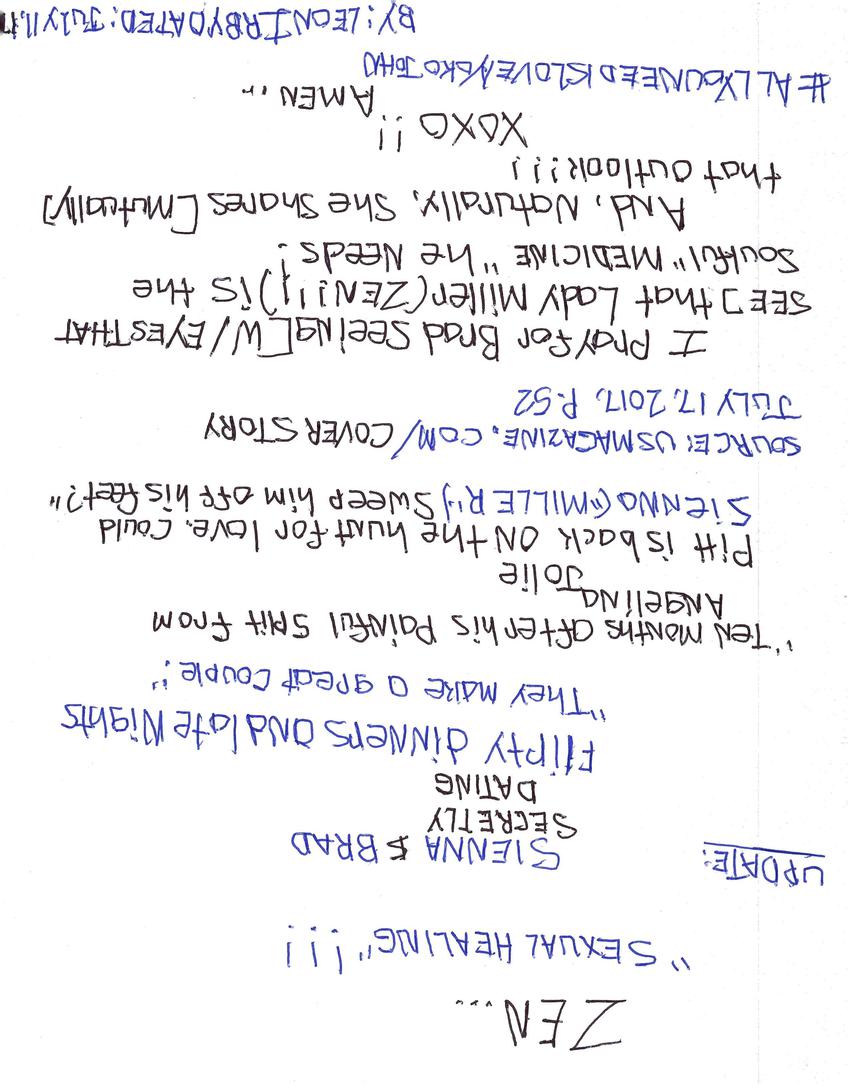 ZEN...
"SEXUAL HEALING"!!!
UPDATE:
SIENNA & BRAD
SECRETLY
DATING
Flirty dinners and late Nights
"They make a great couple."
"Ten months after his painful split from
Angelina
Jolie
Pitt is back on the hunt for love. Could
Sienna ("MILLER") sweep him off his feet?"
SOURCE: USMAGAZINE.COM/COVER STORY
JULY 17, 2017, P.52
I pray for Brad seeing [W/EYES THAT
SEE] that Lady Miller (ZEN!!!) is the
Soulful "MEDICINE" he Needs!
And, Naturally, she shares [mutually]
that outlook!!!
XOXO!!
AMEN..
#ALLYOUNEEDISLOVE/YOKOJOHN
BY: LEON IRBY DATED: July 11, 17